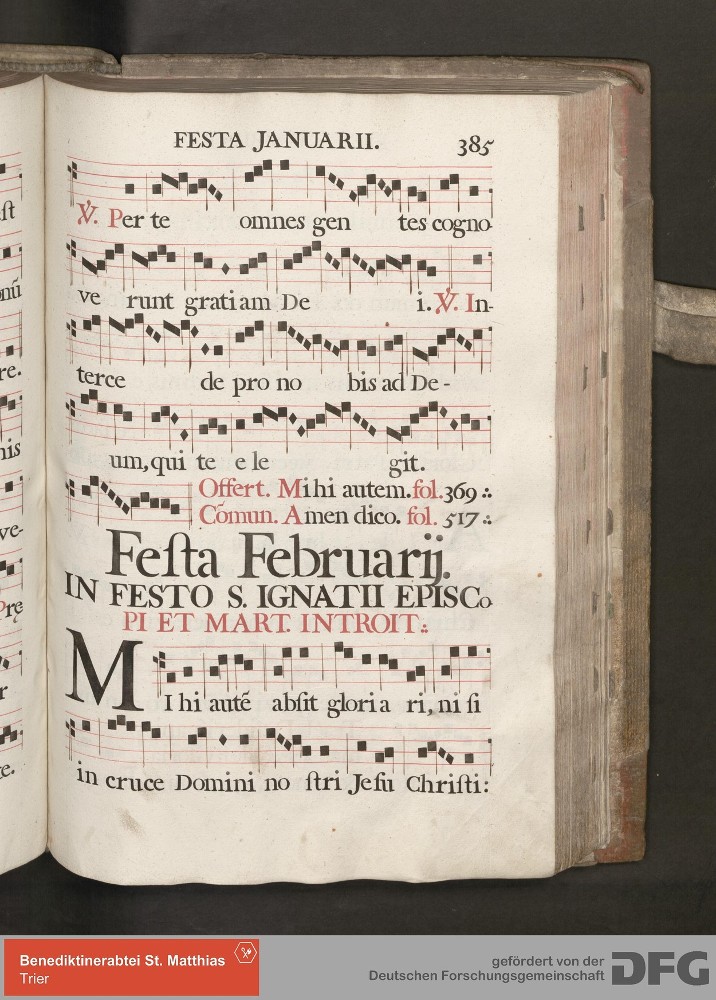 FESTA JANUARII. 385
℣. Per te omnes gen tes cogno-
ve runt gratiam De i. ℣. In-
terce de pro no bis ad De-
um, qui te e le git.
Offert. Mihi autem. fol. 369 ∴
Cõmun. Amen dico. fol. 517 ∴
Feſta Februarij.
IN FESTO S. IGNATII EPISCO
PI ET MART. INTROIT ∴
MI hi autē abſit gloria ri, ni ſi
in cruce Domini no ſtri Jeſu Chriſti:
ſt
nū
re.
nis
ve-
Prę
r
e.
Benediktinerabtei St. Matthias
Trier
gefördert von der
Deutschen Forschungsgemeinschaft
DFG